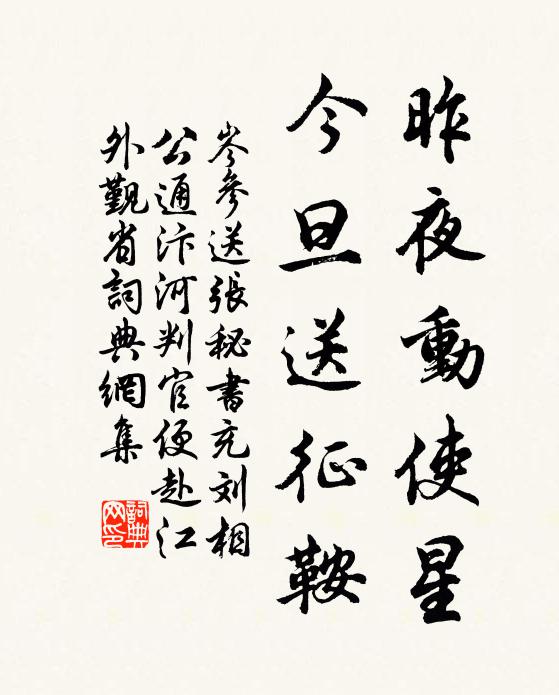 昨夜動使星
今旦送征鞍
岑參送張秘書充刘相
公通汴河判官便赴江
外覲省詞典網集
詞典
网印